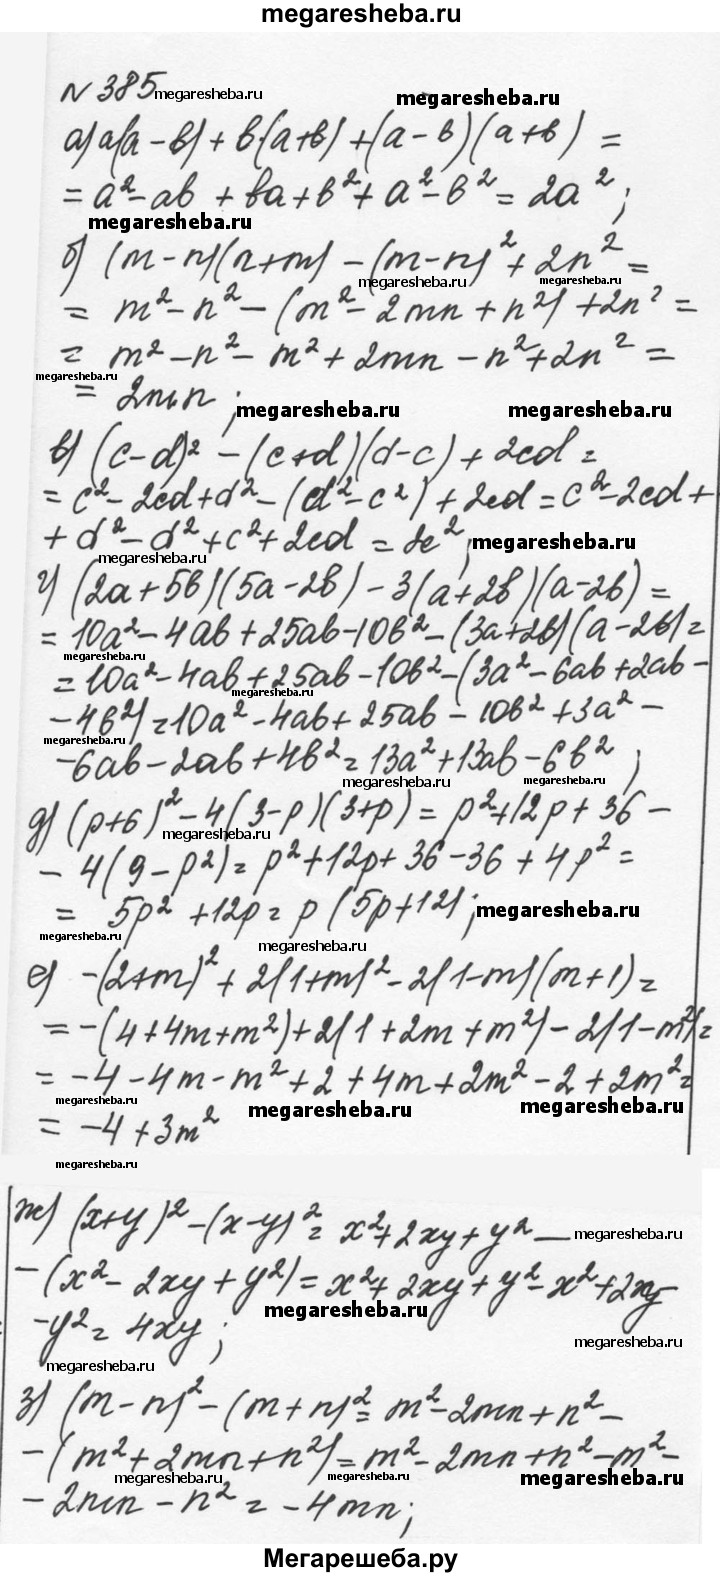 megaresheba.ru
№ 385 megaresheba.ru megaresheba.ru
а) a(a - b) + b(a+b) + (a - b)(a+b) =
= a² - ab + ba + b² + a² - b² = 2a²;
megaresheba.ru
б) (m - n)(n+m) - (m-n)² + 2n² =
megaresheba.ru megaresheba.ru
= m² - n² - (m² - 2mn + n²) + 2n² =
= m² - n² - m² + 2mn - n² + 2n² =
megaresheba.ru
= 2mn; megaresheba.ru megaresheba.ru
в) (c-d)² - (c+d)(d-c) + 2cd =
= c² - 2cd + d² - (d² - c²) + 2cd = c² - 2cd +
+ d² - d² + c² + 2cd = 2c²; megaresheba.ru
megaresheba.ru
г) (2a+5b)(5a-2b) - 3(a+2b)(a-2b) =
= 10a² - 4ab + 25ab - 10b² - (3a+2b)(a-2b) =
megaresheba.ru
= 10a² - 4ab + 25ab - 10b² - (3a² - 6ab + 2ab -
megaresheba.ru
- 4b²) = 10a² - 4ab + 25ab - 10b² + 3a² -
megaresheba.ru
- 6ab - 2ab + 4b² = 13a² + 13ab - 6b²;
megaresheba.ru megaresheba.ru
д) (p+6)² - 4(3-p)(3+p) = p² + 12p + 36 -
megaresheba.ru
- 4(9 - p²) = p² + 12p + 36 - 36 + 4p² =
= 5p² + 12p = p(5p+12); megaresheba.ru
megaresheba.ru megaresheba.ru
е) -(2+m)² + 2(1+m)² - 2(1-m)(m+1) =
= -(4+4m+m²) + 2(1+2m+m²) - 2(1-m²) =
= -4 - 4m - m² + 2 + 4m + 2m² - 2 + 2m² =
megaresheba.ru megaresheba.ru megaresheba.ru
= -4 + 3m²
megaresheba.ru
ж) (x+y)² - (x-y)² = x² + 2xy + y² - megaresheba.ru
- (x² - 2xy + y²) = x² + 2xy + y² - x² + 2xy -
megaresheba.ru
- y² = 4xy; megaresheba.ru
megaresheba.ru
з) (m-n)² - (m+n)² = m² - 2mn + n² -
- (m² + 2mn + n²) = m² - 2mn + n² - m² -
megaresheba.ru megaresheba.ru megaresheba.ru
- 2mn - n² = -4mn;
Мегарешеба.ру